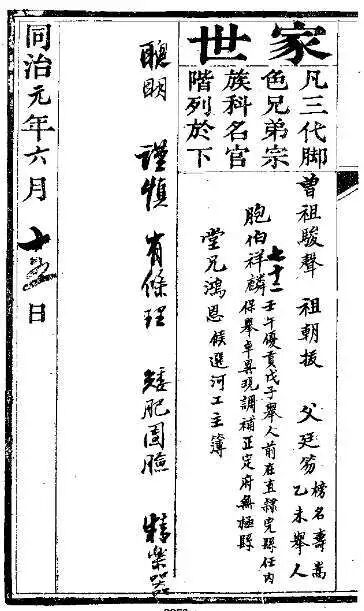 家世
凡三代脚
色兄弟宗
族科名官
階列於下
曾祖駿聲 祖朝拔 父廷
榜名壽嵩
乙未舉人
胞伯祥麟
七十二
壬午優貢戊子舉人前在直隸完縣任內
保舉卓異現調補正定府無極縣
堂兄鴻恩候選河工主簿
聰明 謹慎 有條理 矮肥圓臉
同治元年六月十五日